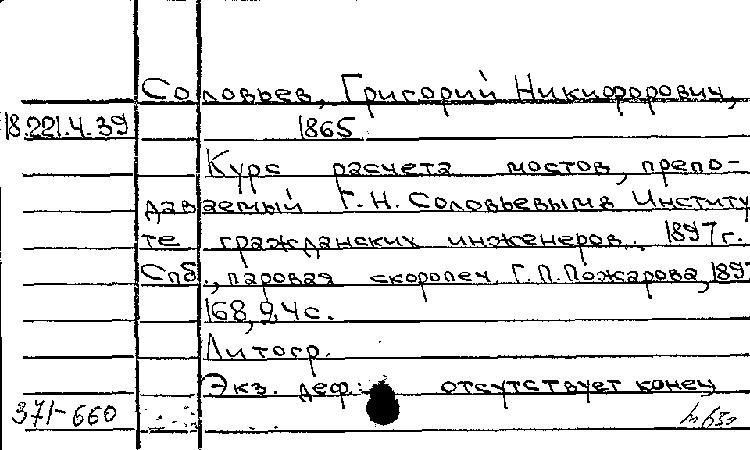 Соловьев, Григорий Никифорович,
18.221.4.39 1865
Курс расчета мостов, препо-
даваемый Г.Н. Соловьевым в Институ
те гражданских инженеров. 1897 г.
Спб., паровая скоропеч. Г.П. Пожарова, 1897
168, 2, 4 с.
Литогр.
Экз. деф.: отсутствует конец
371-660